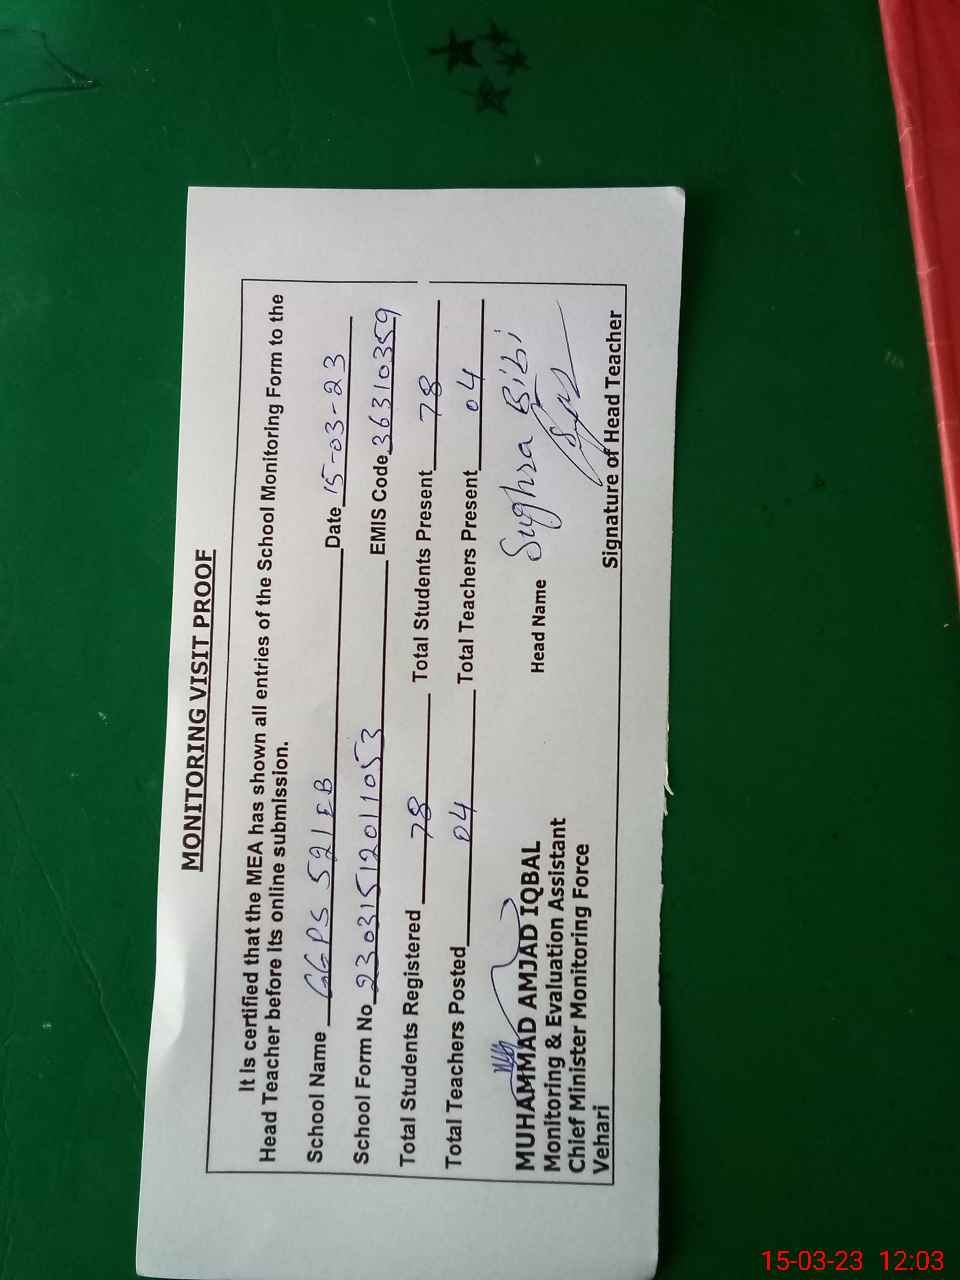 MONITORING VISIT PROOF
It is certified that the MEA has shown all entries of the School Monitoring Form to the
Head Teacher before its online submission.
School Name GGPS 521 EB Date 15-03-23
School Form No 23031512011053 EMIS Code 36310359
Total Students Registered 78 Total Students Present 78
Total Teachers Posted 04 Total Teachers Present 04
Head Name Sughra Bibi
MUHAMMAD AMJAD IQBAL
Monitoring & Evaluation Assistant
Chief Minister Monitoring Force
Vehari
Signature of Head Teacher
15-03-23 12:03